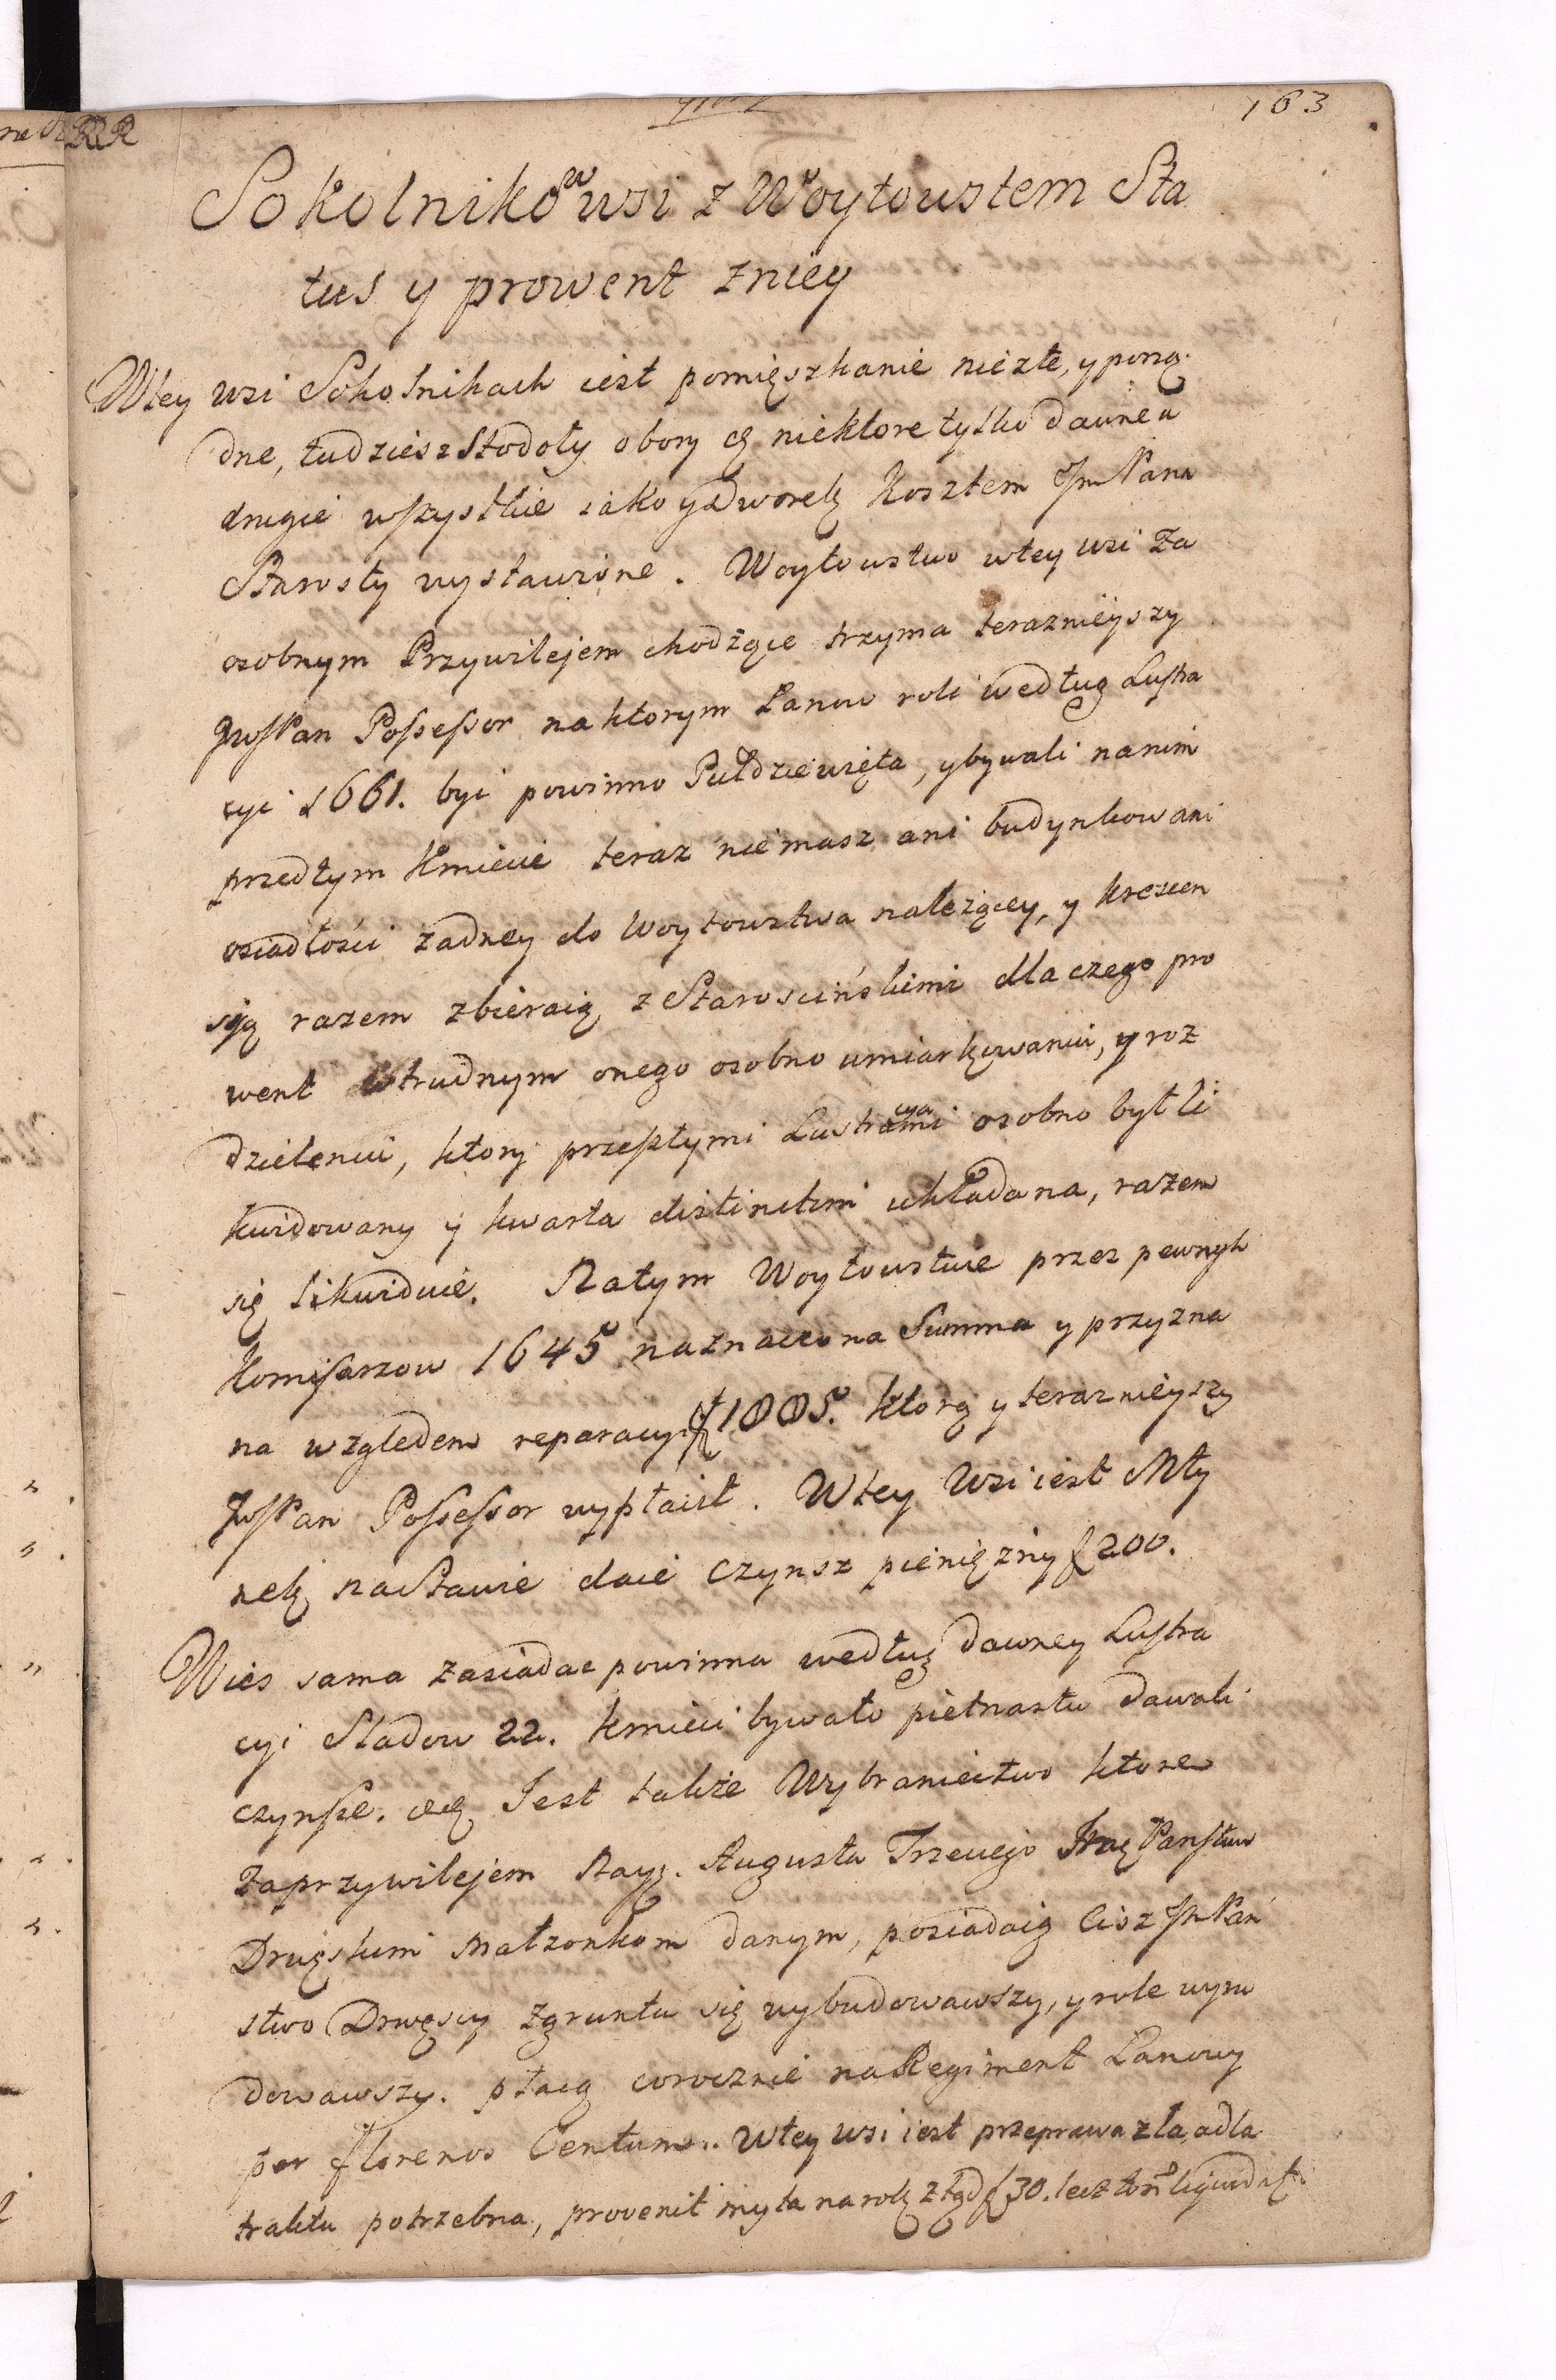 163
Sokolnikow wsi z Woytowstem Sta
tus y prowent zniey
Wtey wsi Sokolnikach iest pomięszkanie niezłe, y porzą
dne, tudziesz Stodoły obory & niektore tylko dawne a
drugie wszystkie iako y Dworek Kosztem Jm Pana
Starosty wystawione. Woytowstwo wtey wsi za
osobnym Przywilejem chodzące trzyma teraznieyszy
Possessor na ktorym Lanow roli według Lustra
cyi 1661. byi powinno Pułdziewięta, y bywali nanim
przedtym Kmiecie teraz niemasz ani budynkow ani
osiadłości żadney do Woytowstwa należącey, y krescen
sye razem zbieraią z Staroscińskiemi dla czego pro
went w trudnym onego osobno umiarkowaniu, y roz
dzieleniu, ktory przeszłymi Lustracyami osobno był li
kwidowany y kwarta distinctim układana, razem
się likwiduie. Natym Woytowstwie przez pewnych
Komisarzow 1645 naznaczona Summa y przyzna
na względem reparacyi f 1005. ktorą y teraznieyszy
Possessor wypłacił. Wtey Wsi iest Mły
nek na Stawie daie czynsz pieniężny f 200.
Wies sama zasiadac powinna według dawney Lustra
cyi Sladow 22. kmieci bywało pietnastu dawali
czynsze. Jest także Wybraniectwo ktore
za przywilejem Nayj. Augusta Trzeciego Panstwu
Małzonkom danym, posiadaią ciż Jch Pań
stwo zgruntu się wybudowawszy, y role wyro
dowawszy. płacą corocznie na Regiment Lanowy
per florenos Centum.. Wtey wsi iest przeprawa zła, a dla
traktu potrzebna, provenit myta na rok ztąd f 30. lecz